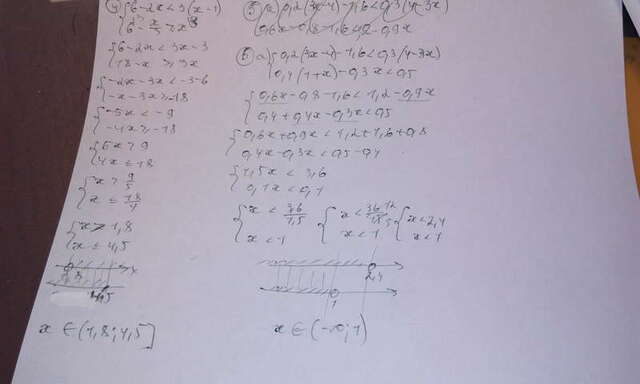 4) { 6-2x<3(x-1)
{ 6-x/3 ≥ x
{ 6-2x<3x-3
{ 18-x ≥ 3x
{ -2x-3x<-3-6
{ -x-3x≥-18
{ -5x<-9
{ -4x≥-18
{ 5x>9
{ 4x≤18
{ x>9/5
{ x≤18/4
{ x>1,8
{ x≤4,5
x∈(1,8;4,5]
5) a) 0,2(3x-4)-1,6<0,3(4-3x)
0,6x-0,8-1,6<1,2-0,9x
5) a) { 0,2(3x-4)-1,6<0,3(4-3x)
{ 0,4(1+x)-0,3x<0,5
{ 0,6x-0,8-1,6<1,2-0,9x
{ 0,4+0,4x-0,3x<0,5
{ 0,6x+0,9x<1,2+1,6+0,8
{ 0,4x-0,3x<0,5-0,4
{ 1,5x<3,6
{ 0,1x<0,1
{ x<3,6/1,5 { x<36/15 { x<2,4
{ x<1 { x<1 { x<1
2,4
1
x∈(-∞;1)